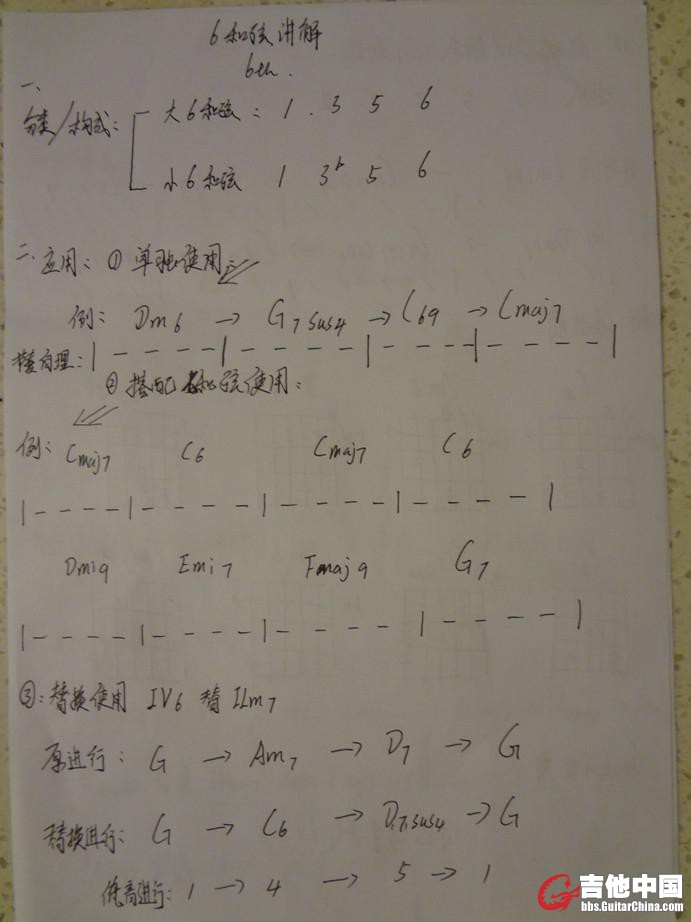 6和弦讲解
6th.
一、
分类/构成: 大6和弦: 1. 3 5 6
小6和弦 1 3b 5 6
二、应用: ① 单独使用:
例: Dm6 → G7sus4 → C69 → Cmaj7
|----|----|----|----|
② 搭配和弦使用:
例: Cmaj7 C6 Cmaj7 C6
|----|----|----|----|
Dmi9 Emi7 Fmaj9 G7
|----|----|----|----|
③: 替换使用 IV6 替 IIm7
原进行: G → Am7 → D7 → G
替换进行: G → C6 → D7sus4 → G
低音进行: 1 → 4 → 5 → 1
吉他中国
bbs.GuitarChina.com